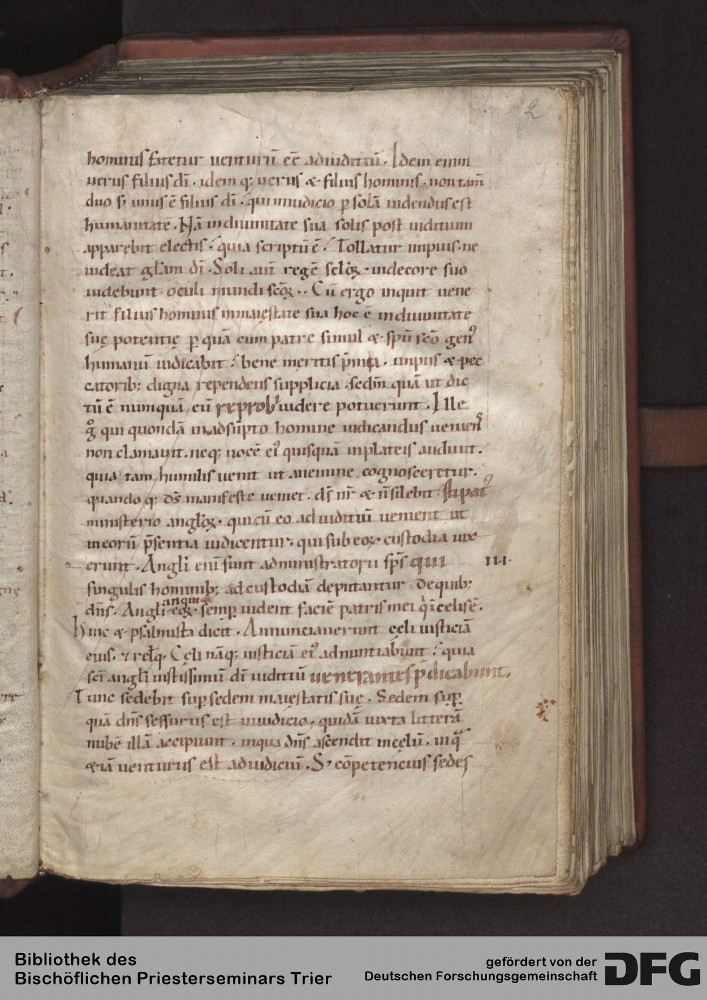 2
hominis fatetur venturū eē ad iuditiū. Idem enim
verus filius dī. idem q; verus & filius hominis. non tam
duo sꝫ unus ē filius dī. qui in iudicio ꝑ solā videndus est
humanitatē. Nā in divinitate sua solis post iuditium
apparebit electis. quia scriptū ē. Tollatur impius. ne
videat gl̄am dī. Soli aūt regē scl̄oꝝ. in decore suo
videbunt oculi mundi scōꝝ. Cū ergo inquit vene
rit filius hominis in maiestate sua hoc ē in divinitate
suę potentię ꝑ quā cum patre simul & sp̄u scō gen⁹
humanū iudicabit. bene meritis p̄mia. impiis & pec
catorib; digna rependens supplicia. sedm̄ quā ut dic
tū ē numquā eū reprobi videre potuerunt. Ille
g̊ qui quondā in adsūpto homine iudicandus veniens
non clamavit. neq; vocē ei⁹ quisquā in plateis audivit.
quia tam humilis venit ut a nemine cognosceretur.
quando q; ds̄ manifeste veniet. ds̄ nr̄ & n̄ silebit stipat⁹
ministerio angl̄oꝝ. qui cū eo ad iuditiū venient ut
in eorū p̄sentia iudicentur. qui sub eoꝝ custodia vix
erunt. Angl̄i enī sunt administratorii sp̄s qui
III.
singulis hominib; ad custodiā deputantur de quib;
dn̄s. Angl̄i inquit eoꝝ semꝑ vident faciē patris mei q̄ ī celis ē.
Hinc & psalmista dicit. Annunciaverunt cęli iusticiā
eius. & relq̄. Cęli nāq; iusticiā ei⁹ adnuntiabunt. quia
scī angl̄i iustissimū dī iuditiū venerantes p̄dicabunt.
Tunc sedebit sup sedem maiestatis suę. Sedem sup
quā dn̄s sessurus est in iudicio. quidā iuxta litterā
nubē illā accipiunt. in qua dn̄s ascendit in cęlū. in q̄
& iā venturus est ad iudiciū. Sꝫ cōpetencius sedes
Bibliothek des
Bischöflichen Priesterseminars Trier
gefördert von der
Deutschen Forschungsgemeinschaft
DFG